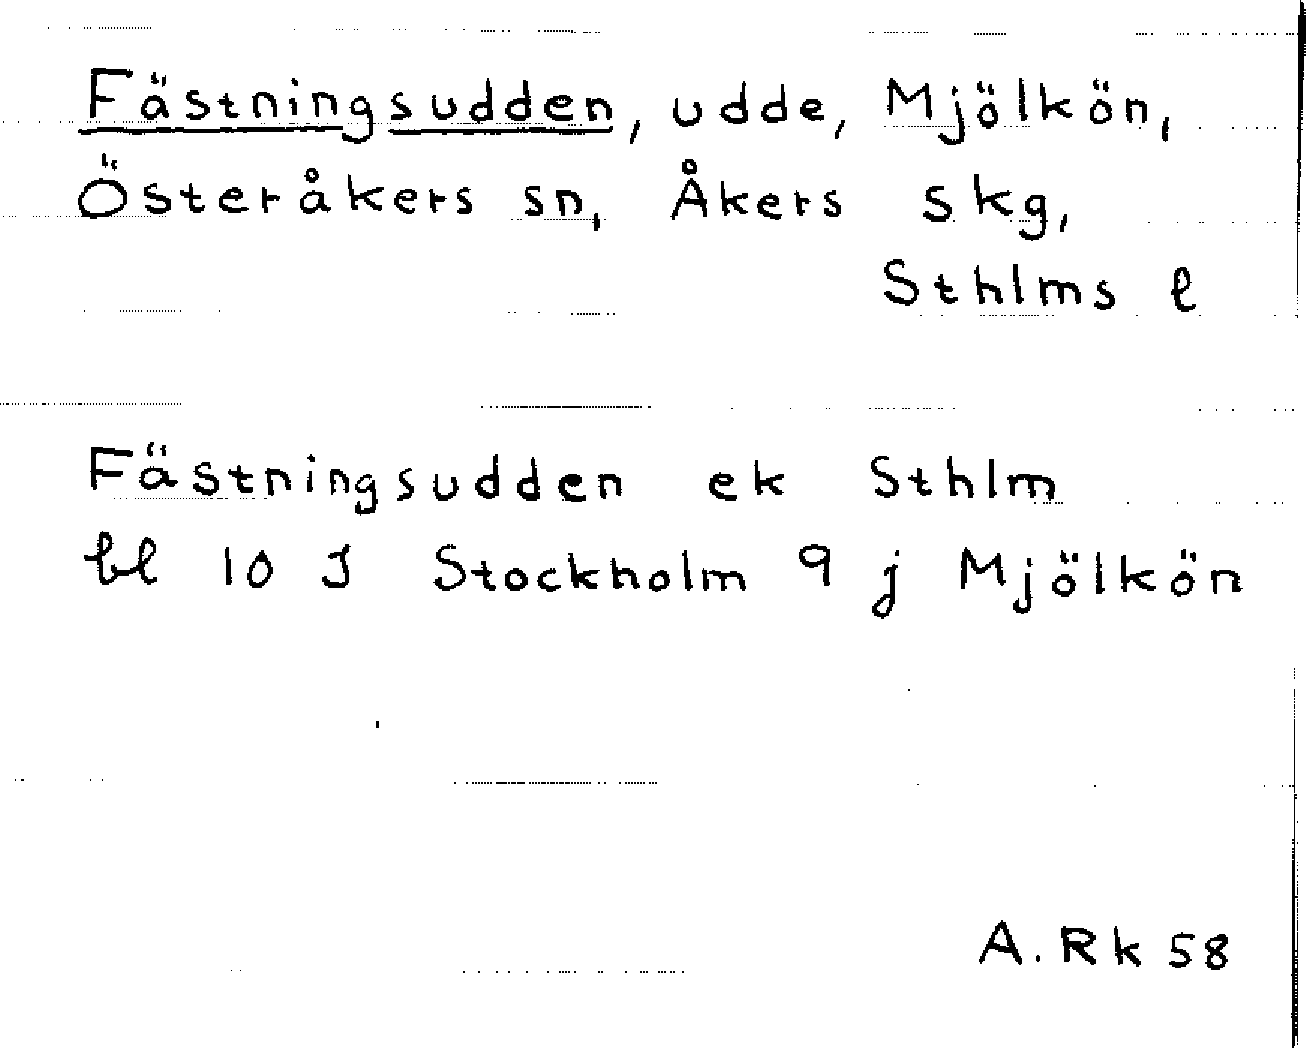 Fästningsudden, udde, Mjölkön,
Österåkers sn, Åkers skg,
Sthlms l
Fästningsudden ek Sthlm
bl 10 J Stockholm 9 j Mjölkön
A. Rk 58